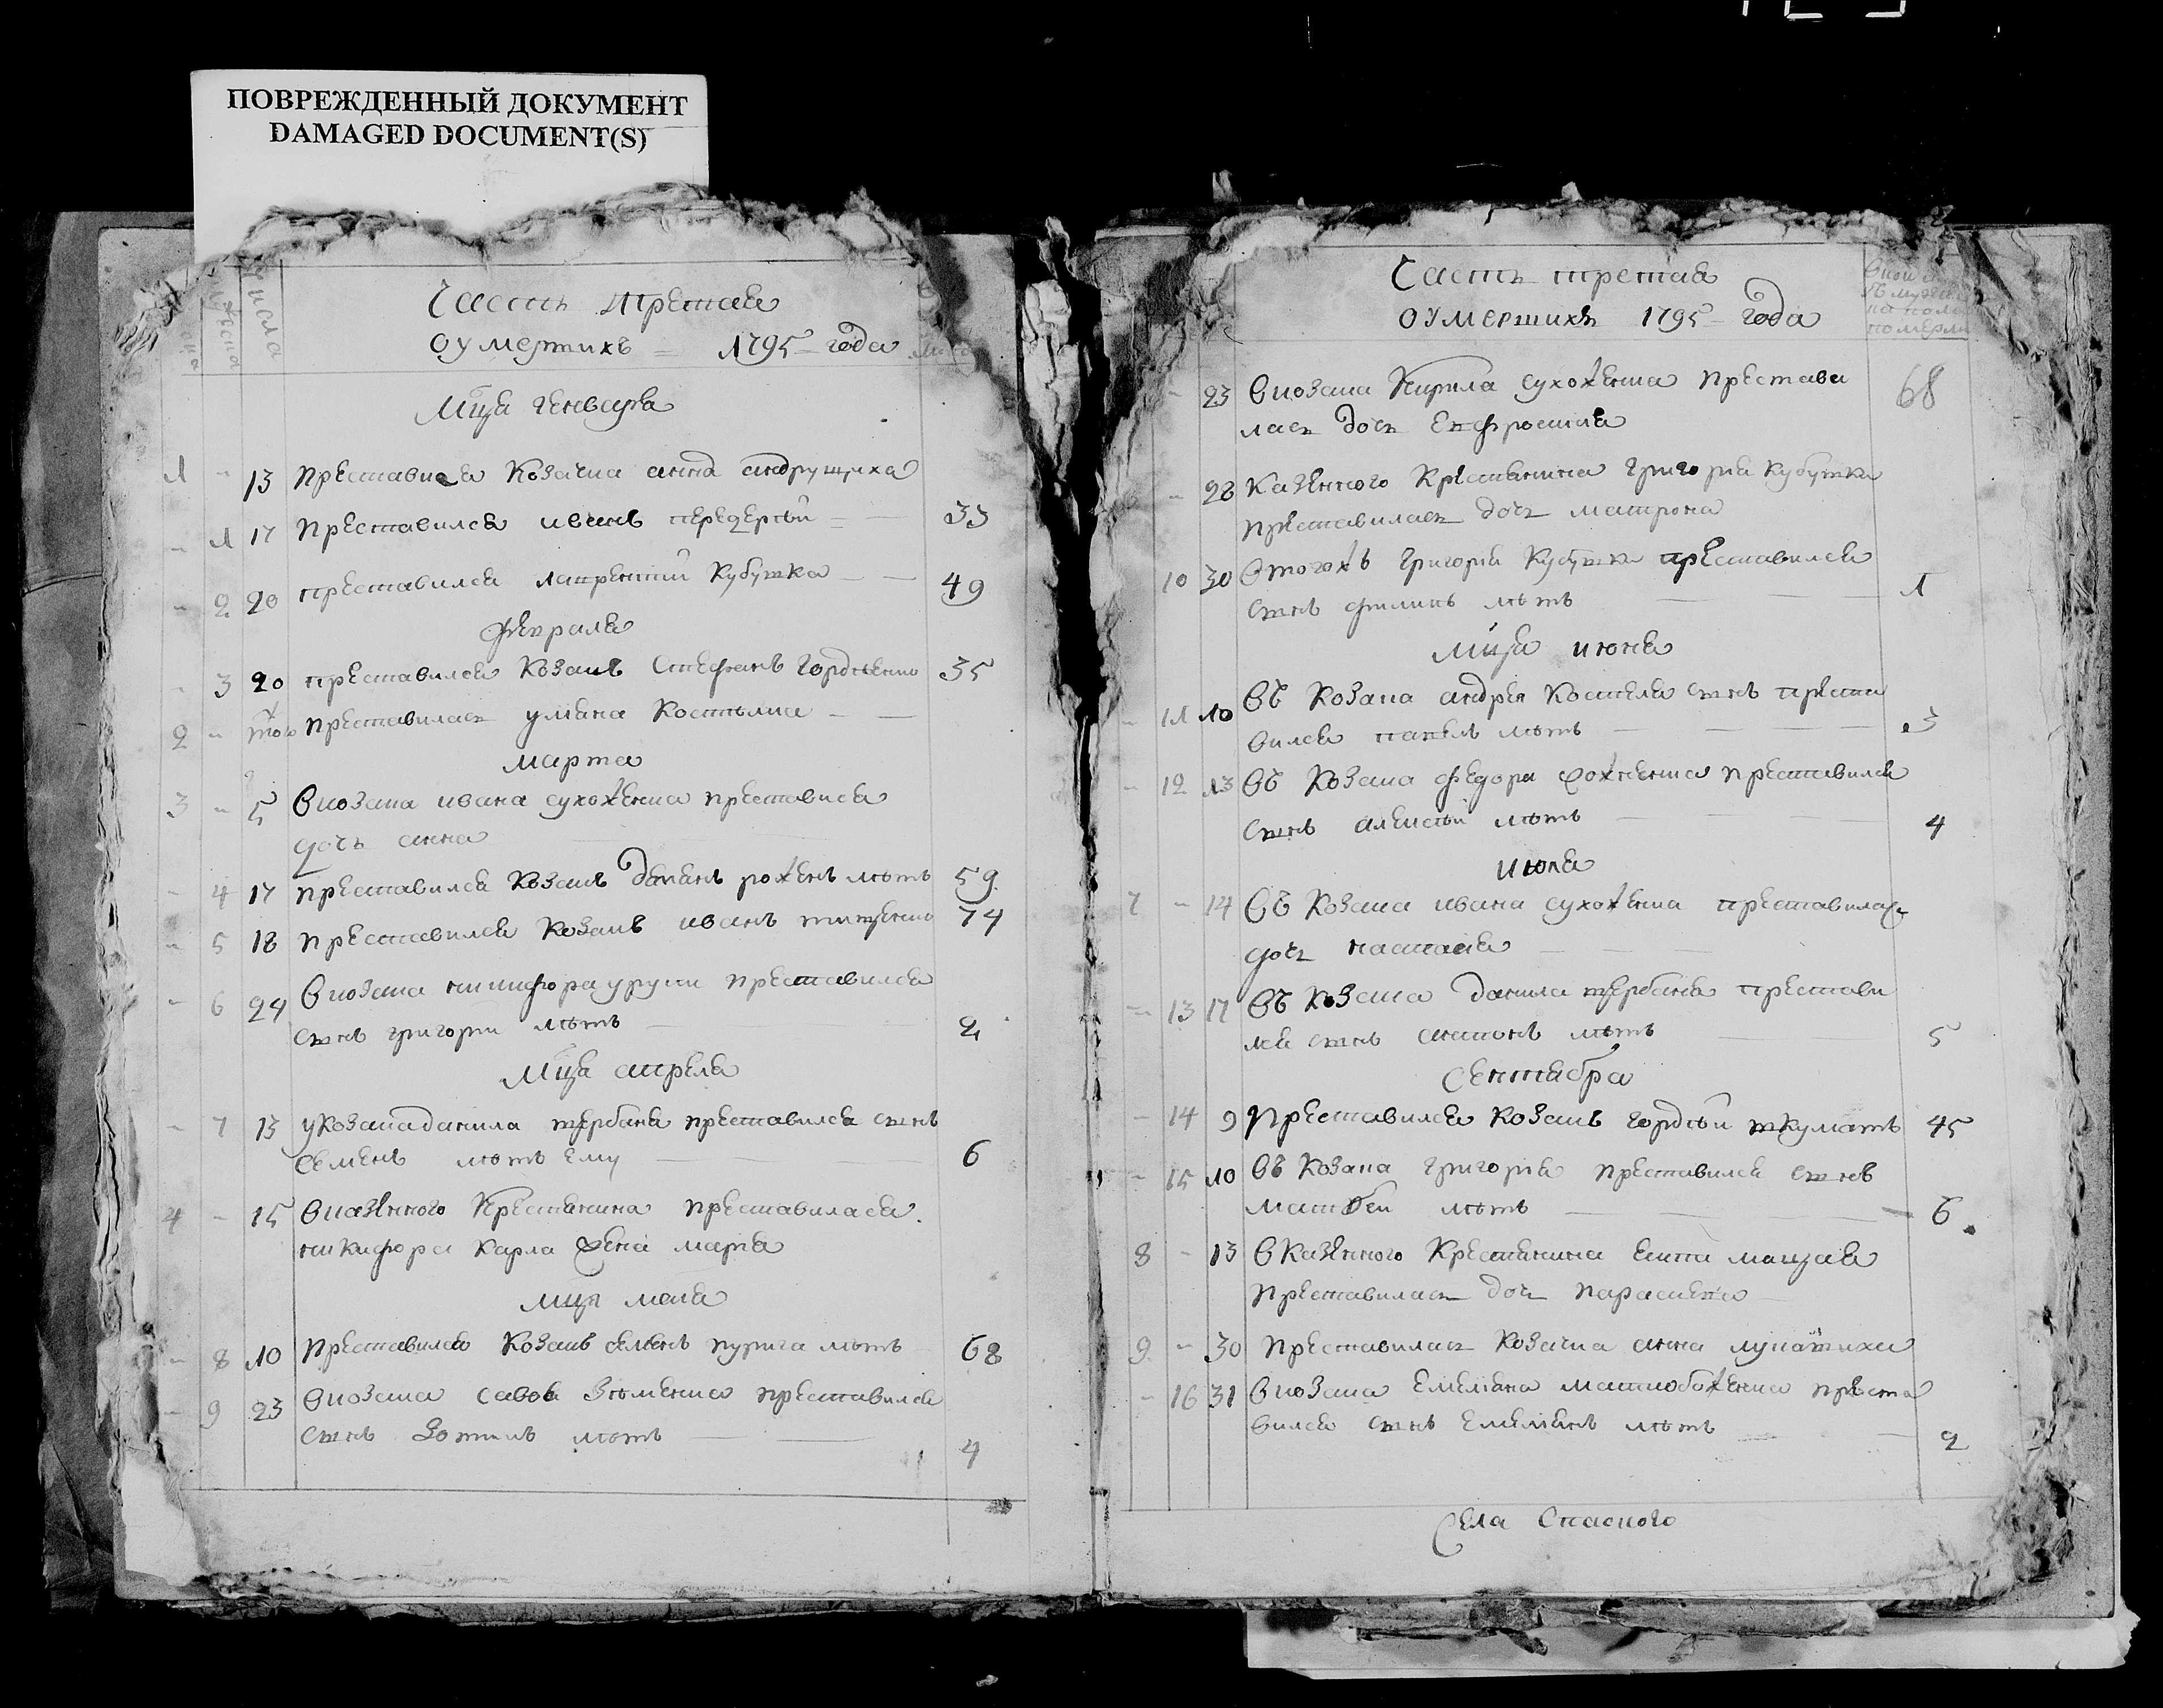 ПОВРЕЖДЕННЫЙ ДОКУМЕНТ
DAMAGED DOCUMENT(S)
числа
Часть третая
оумершихъ 1795 года
Мца генваря
1 - 13 Преставися козачка анна андрущиха
- 1 17 Преставился иванъ передерѣй 33
- 2 20 преставился лаврентий Кубушка 49
февраля
- 3 20 преставился козакъ Стефанъ гордѣенко 35
2 - того преставилась улияна
марта
3 - 5 В козака ивана сухоженка преставися
дочь анна
- 4 17 преставился козакъ даниилъ роженъ лѣтъ 59
- 5 18 преставился козакъ иванъ тищенко 74
- 6 24 В козака никифора преставился
сынъ григорий лѣтъ 2
Мца априля
- 7 13 у козака данила щербаня преставился сынъ
семенъ лѣтъ ему 6
4 - 15 В казенного крестянина преставилася
никифора карпа жена мария
мця маия
- 8 10 Преставился козакъ семенъ пурига лѣтъ 68
- 9 23 В козака савы преставился
сынъ зотикъ лѣтъ 4
Часть третая
оумершихъ 1795 года
- 23 В козака Кирила сухоженка престави
лась дочь Ефросиния 68
- 28 казенного крестянина григория кубушки
преставилась дочь матрона
10 30 В тогожъ григория кубушки преставился
сынъ филипъ лѣтъ 1
мица июня
- 11 10 Въ козака андрея сынъ преста
вился павелъ лѣтъ 3
- 12 13 Въ козака федора преставился
сынъ алексѣй лѣтъ 4
июля
7 - 14 Въ козака ивана сухоженка преставилась
дочь настасия
- 13 17 Въ козака данила щербаня престави
лся сынъ антонъ лѣтъ 5
Сентябра
- 14 9 Преставился козакъ гордѣй шкуматъ 45
- 15 10 Въ козака григория преставился сынъ
матвей лѣтъ 6
8 - 13 В казенного крестянина
преставилась дочь параскева
9 - 30 преставилась козачка анна
- 16 31 В козака емелияна преста
вился сынъ емелиянъ лѣтъ 2
Села Спаского